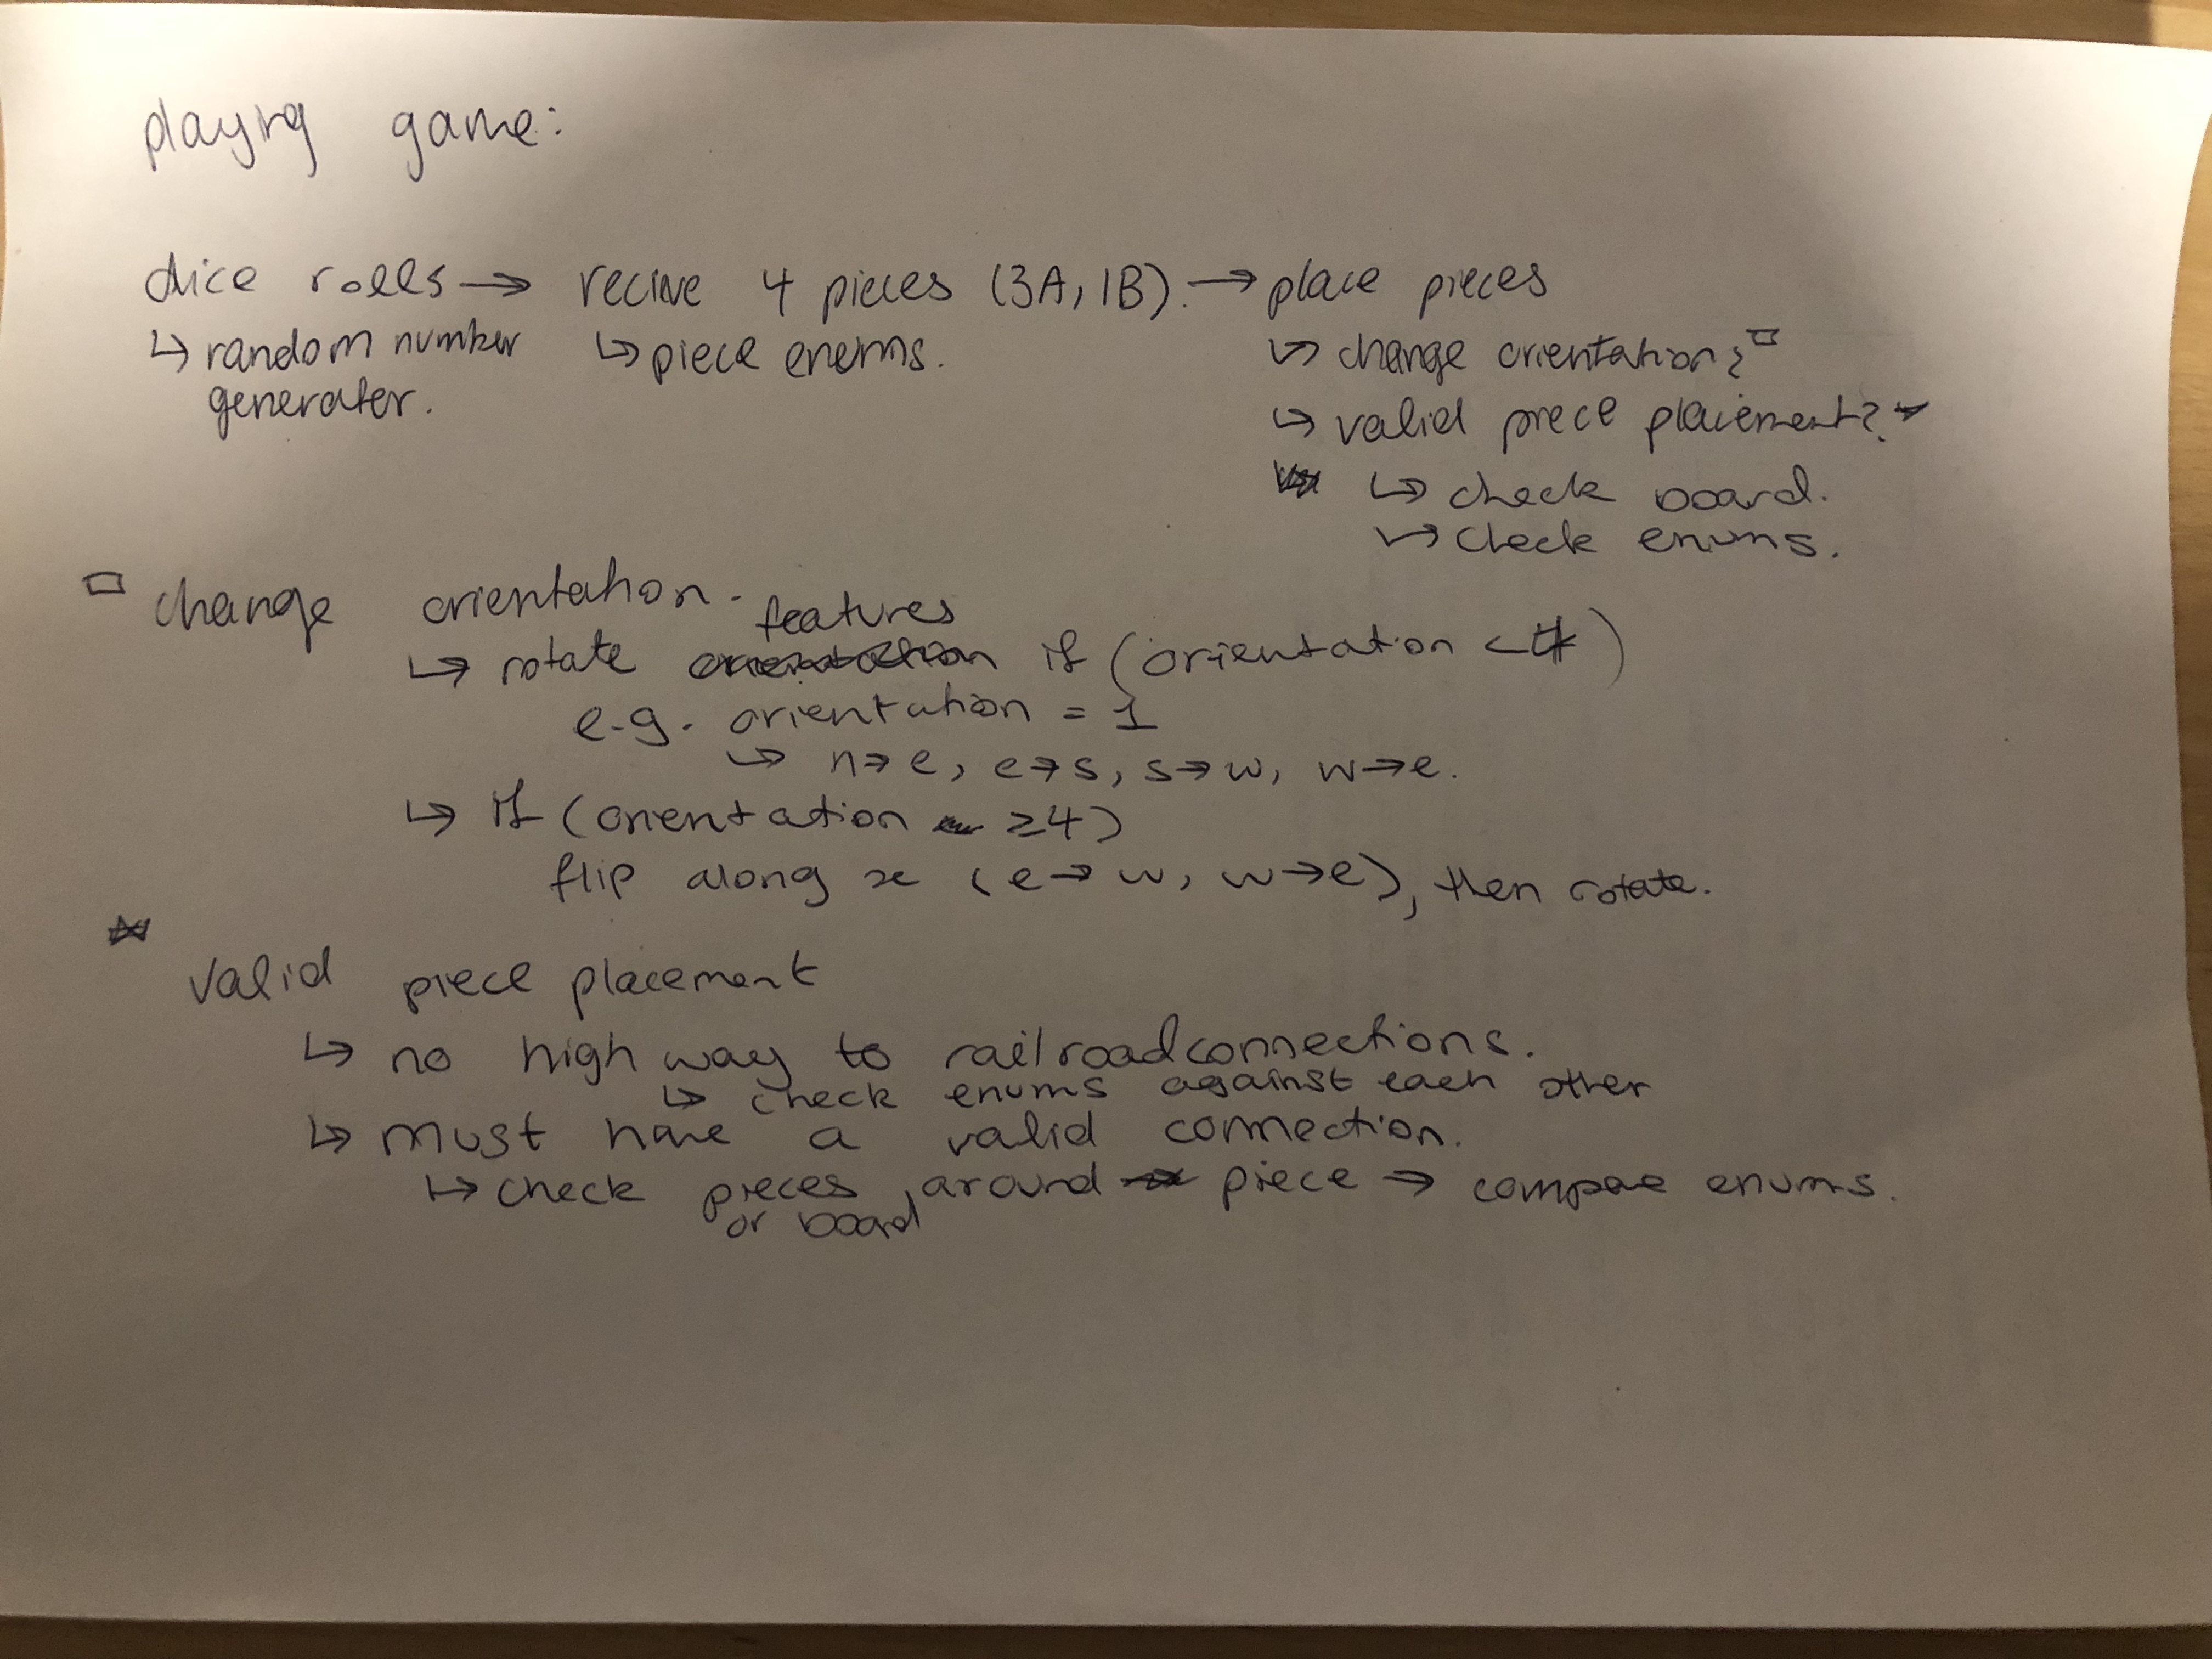 playing game:
dice rolls → recive 4 pieces (3A, 1B). → place pieces
↳ random number generater.
↳ piece enums.
↳ change orientation? □
↳ valid piece placement? *
↳ check board.
↳ check enums.
□ change orientation.
↳ rotate features if (orientation < 4)
e.g. orientation = 1
↳ n→e, e→s, s→w, w→e.
↳ if (orientation ≥4)
flip along x (e→w, w→e), then rotate.
* valid piece placement
↳ no highway to railroad connections.
↳ check enums against each other
↳ must have a valid connection.
↳ check pieces or board around piece → compare enums.